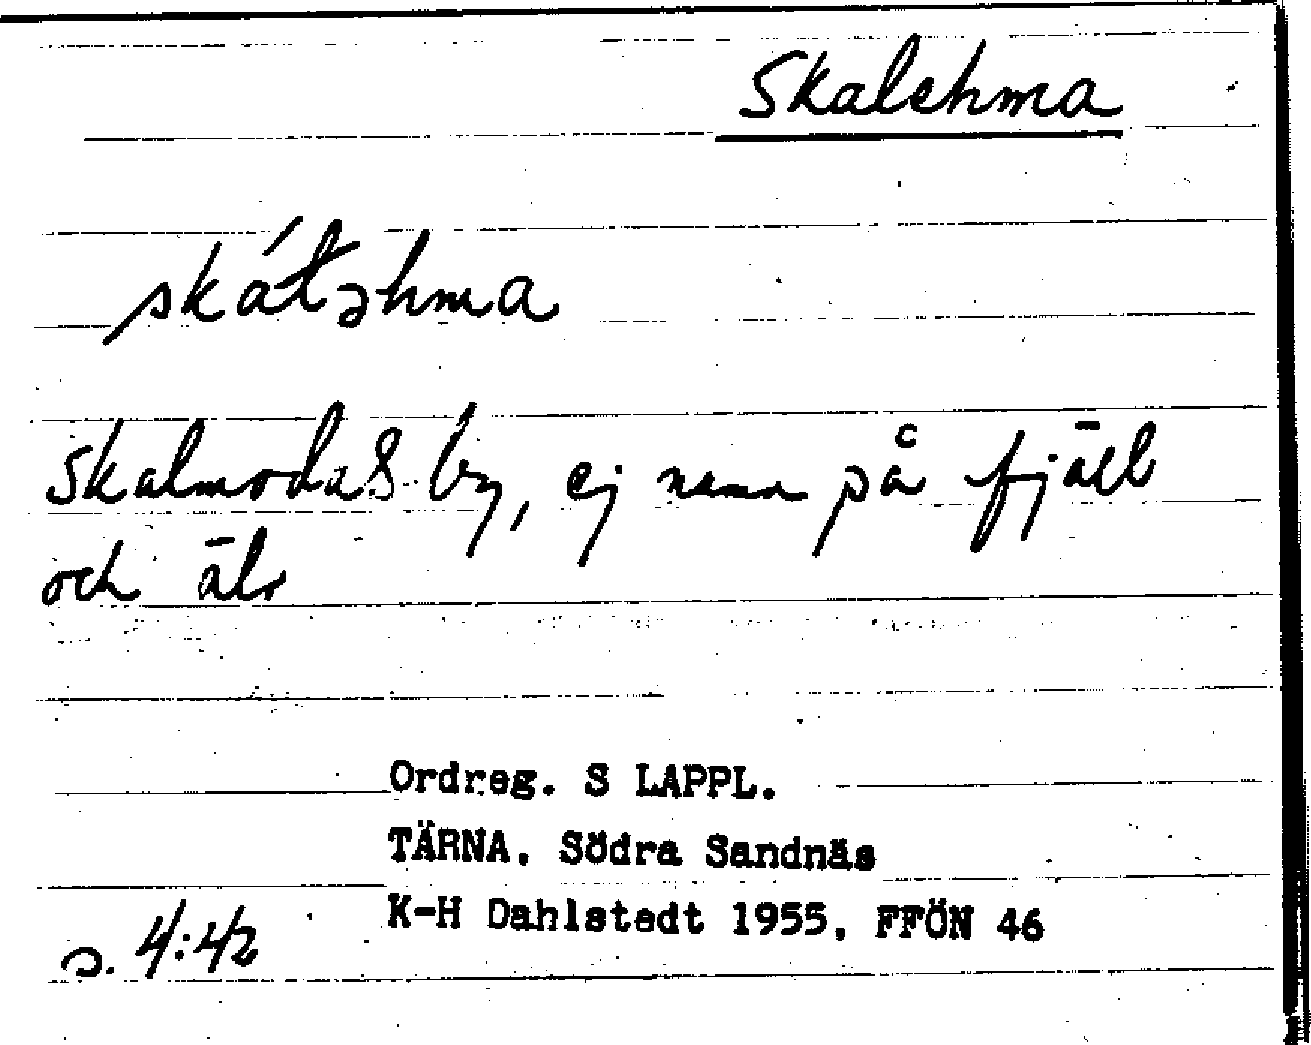 Skalehma
skáƚəhma
Skalmodals by, ej namn på fjäll
och älv
Ordreg. S LAPPL.
TÄRNA. Södra Sandnäs
K-H Dahlstedt 1955. FFÖN 46
s. 4:42